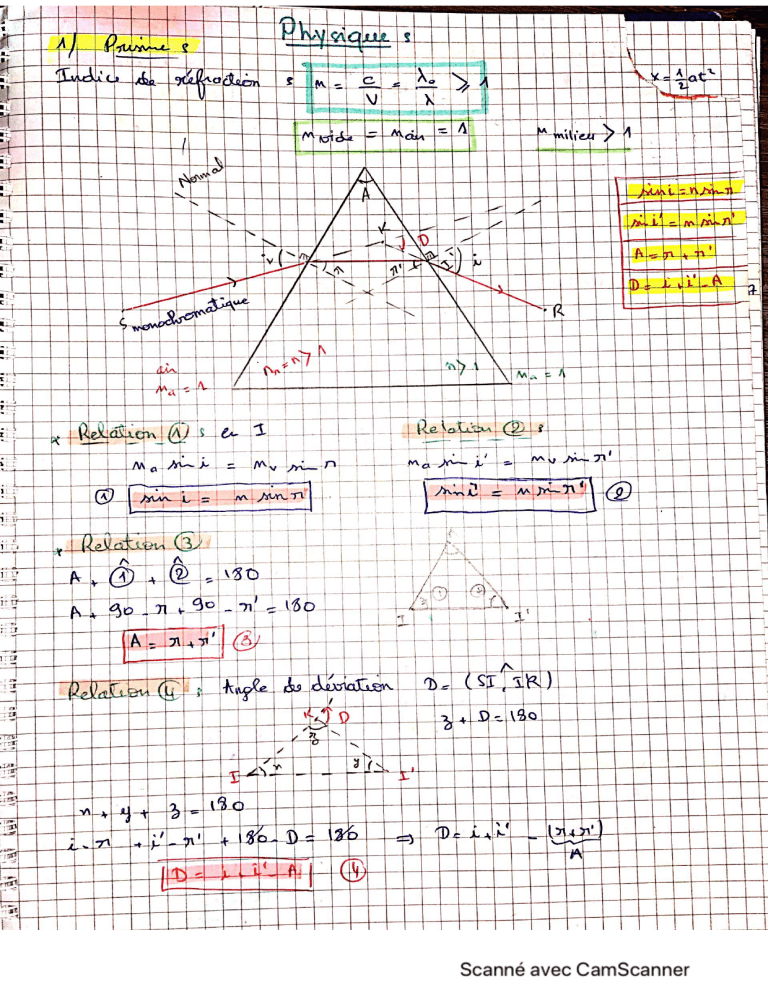 Physique :
1/ Prisme :
x = 1/2 at²
Indice de réfraction : n = c/V = λ₀/λ ⩾ 1
n vide = n air = 1
n milieu > 1
Normal
A
sin i = n sin r
sin i' = n sin r'
A = r + r'
D = i + i' - A
K
D
i
r
r'
I'
i
S
monochromatique
R
air
n_a = 1
n > 1
n > 1
n_a = 1
* Relation ① : en I
n_a sin i = n_v sin r
① sin i = n sin r
Relation ② :
n_a sin i' = n_v sin r'
sin i' = n sin r' ②
* Relation ③
A + 1̂ + 2̂ = 180
A + 90 - r + 90 - r' = 180
A = r + r' ③
① ②
I I'
Relation ④ : Angle de déviation D = (SI, IR)
z + D = 180
K D
z
I x y I'
x + y + z = 180
i - r + i' - r' + 180 - D = 180 ⇒ D = i + i' - (r + r')
A
D = i + i' - A ④
Scanné avec CamScanner